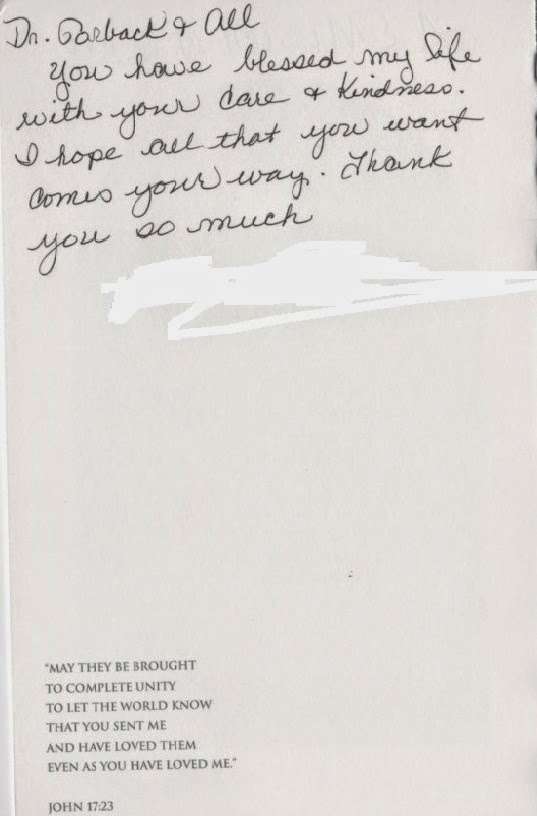 Dr. Garback & All
you have blessed my life
with your care & kindness.
I hope all that you want
comes your way. Thank
you so much
"MAY THEY BE BROUGHT
TO COMPLETE UNITY
TO LET THE WORLD KNOW
THAT YOU SENT ME
AND HAVE LOVED THEM
EVEN AS YOU HAVE LOVED ME."
JOHN 17:23